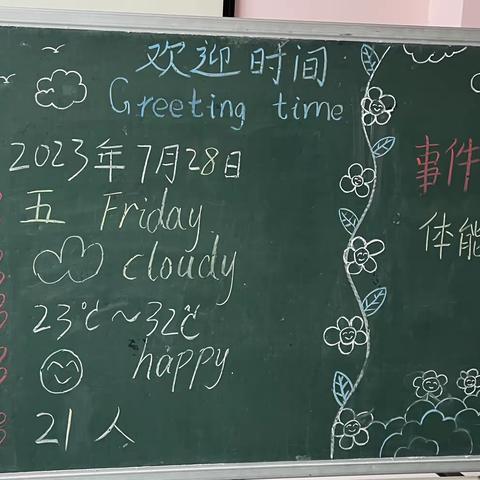 欢迎时间
Greeting time
2023年7月28日
五 Friday
cloudy
23℃～32℃
happy.
21人
事件
体能